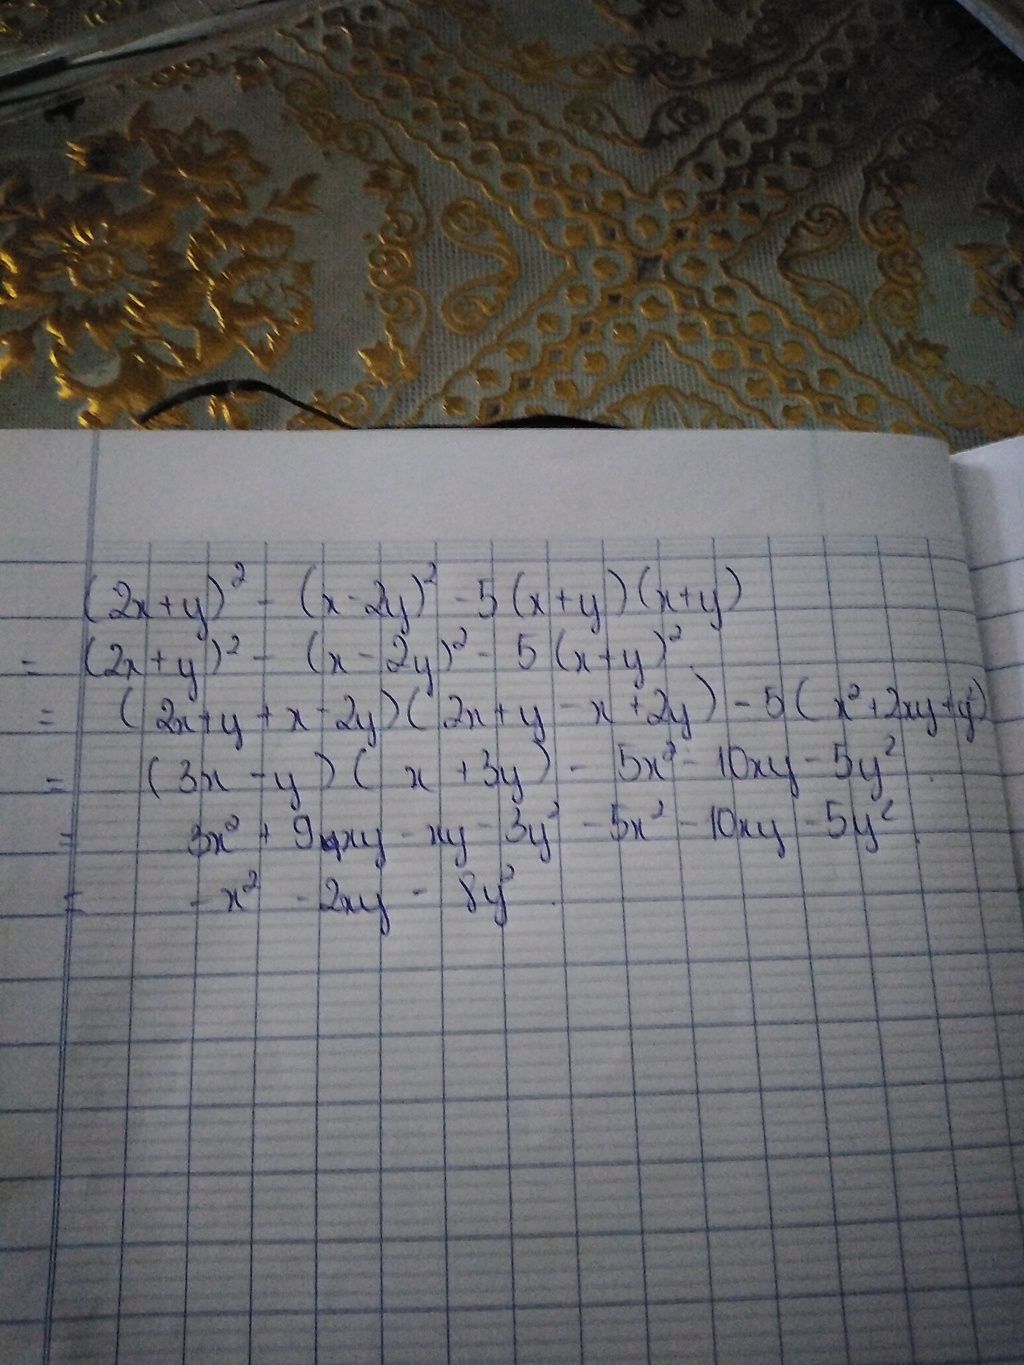 (2x+y)² - (x-2y)² - 5(x+y)(x+y)
= (2x+y)² - (x-2y)² - 5(x+y)².
= (2x+y+x-2y)(2x+y-x+2y) - 5(x²+2xy+y²)
= (3x-y)(x+3y) - 5x² - 10xy - 5y².
= 3x² + 9xy - xy - 3y² - 5x² - 10xy - 5y².
= -x² - 2xy - 8y².